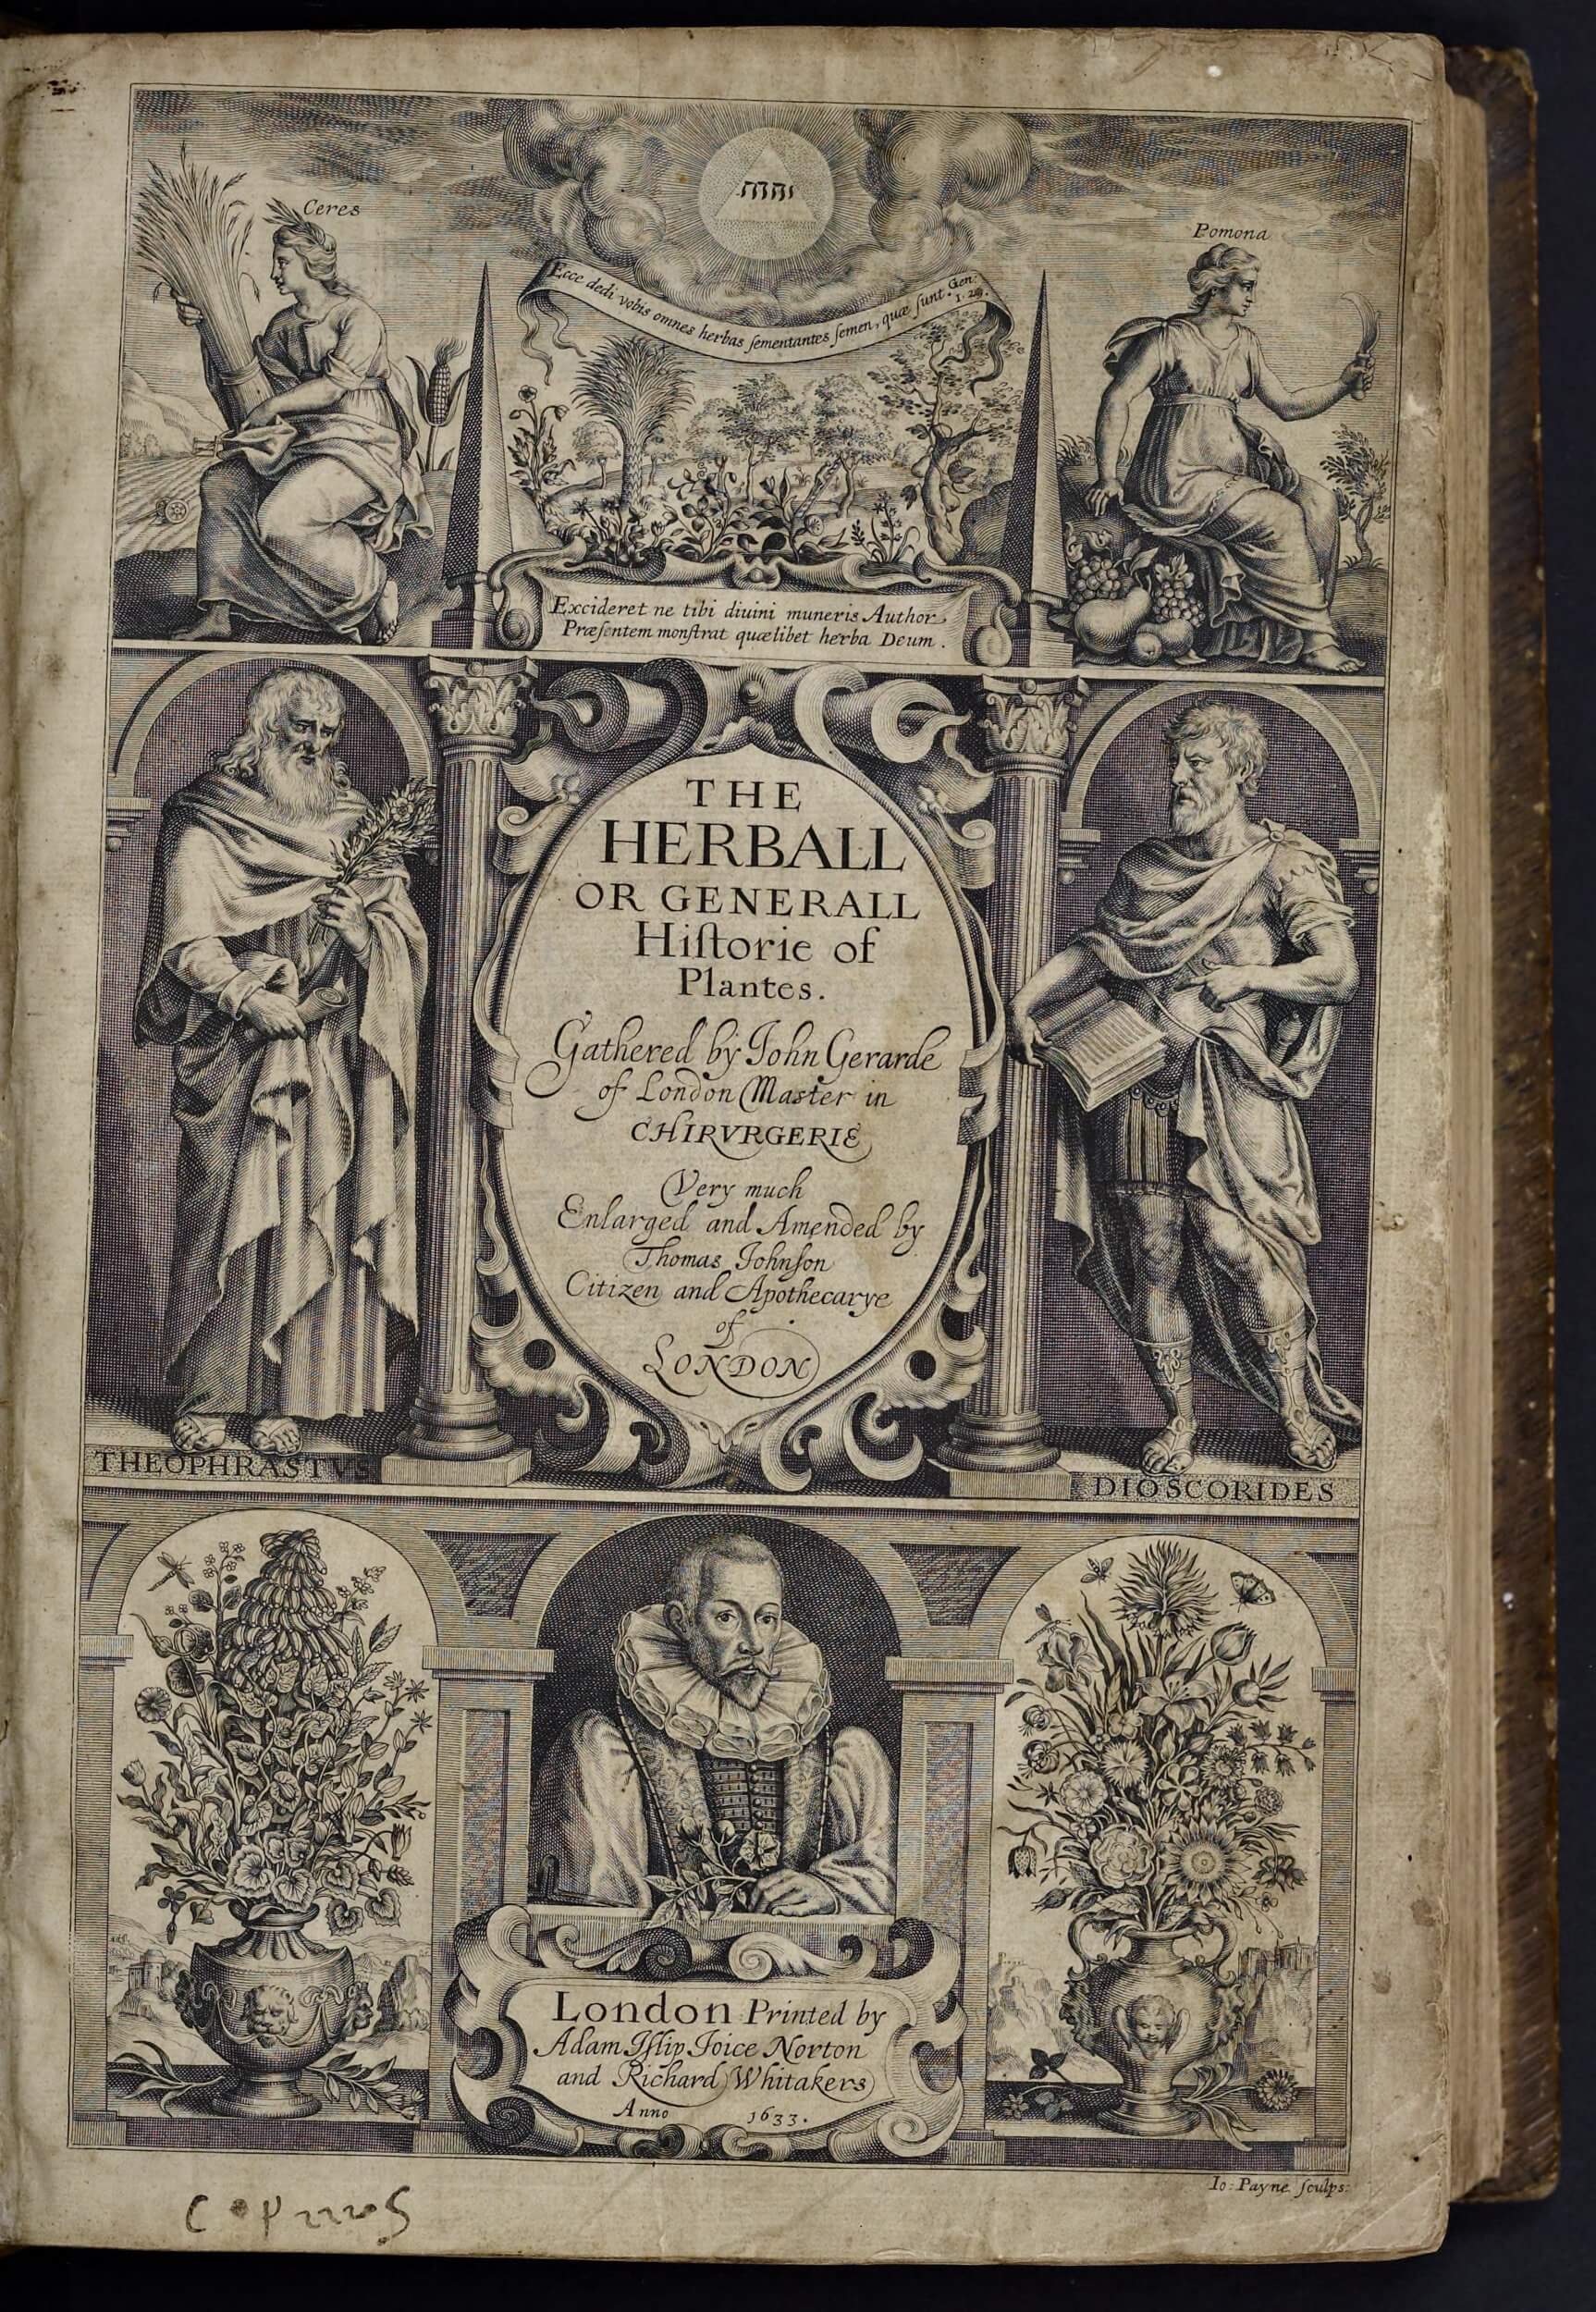 יהוה
Ceres
Pomona
Ecce dedi vobis omnes herbas ſementantes ſemen, quæ ſunt. Gen: 1. 29.
Excideret ne tibi diuini muneris Author
Præſentem monſtrat quælibet herba Deum.
THE
HERBALL
OR GENERALL
Hiſtorie of
Plantes.
Gathered by John Gerarde
of London Master in
CHIRVRGERIE
Very much
Enlarged and Amended by
Thomas Johnſon
Citizen and Apothecarye
of
LONDON
THEOPHRASTVS
DIOSCORIDES
London Printed by
Adam Iſlip Joice Norton
and Richard Whitakers
Anno 1633.
Io: Payne ſculps: